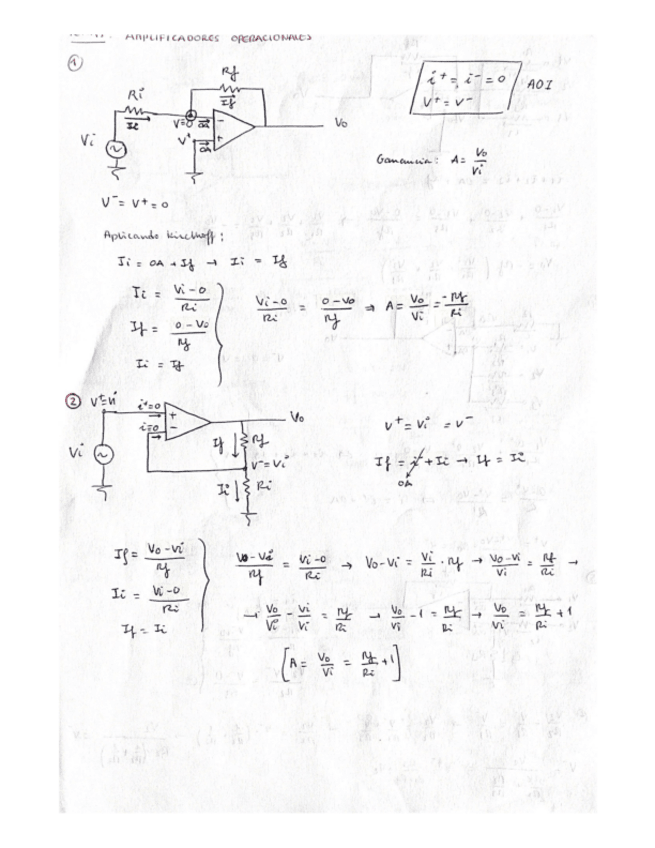 AMPLIFICADORES OPERACIONALES
①
Rf
If
Ri
Ii
V=0
0A
V+
0A
−
+
Vo
Vi
i+ = i− = 0
V+ = V−
AOI
Ganancia: A = Vo/Vi
V− = V+ = 0
Aplicando Kirchhoff:
Ii = 0A + If → Ii = If
Ii = (Vi-0)/Ri
If = (0-Vo)/Rf
Ii = If
(Vi-0)/Ri = (0-Vo)/Rf ⇒ A = Vo/Vi = -Rf/Ri
②
V+=Vi
i+=0
i=0
+
−
Vo
Vi
If
Rf
V−=Vi
Ii
Ri
V+ = Vi = V−
If = i− + Ii → If = Ii
0A
If = (Vo-Vi)/Rf
Ii = (Vi-0)/Ri
If = Ii
(Vo-Vi)/Rf = (Vi-0)/Ri → Vo-Vi = Vi/Ri · Rf → (Vo-Vi)/Vi = Rf/Ri →
→ Vo/Vi - Vi/Vi = Rf/Ri → Vo/Vi - 1 = Rf/Ri → Vo/Vi = Rf/Ri + 1
[A = Vo/Vi = Rf/Ri + 1]